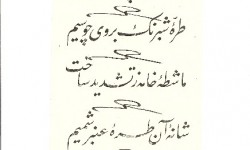 طرهٔ شبرنگ بروی چو سیم
ماشطهٔ خامه ز تشدید ساخت
شانهٔ آن طرهٔ عنبر شمیم